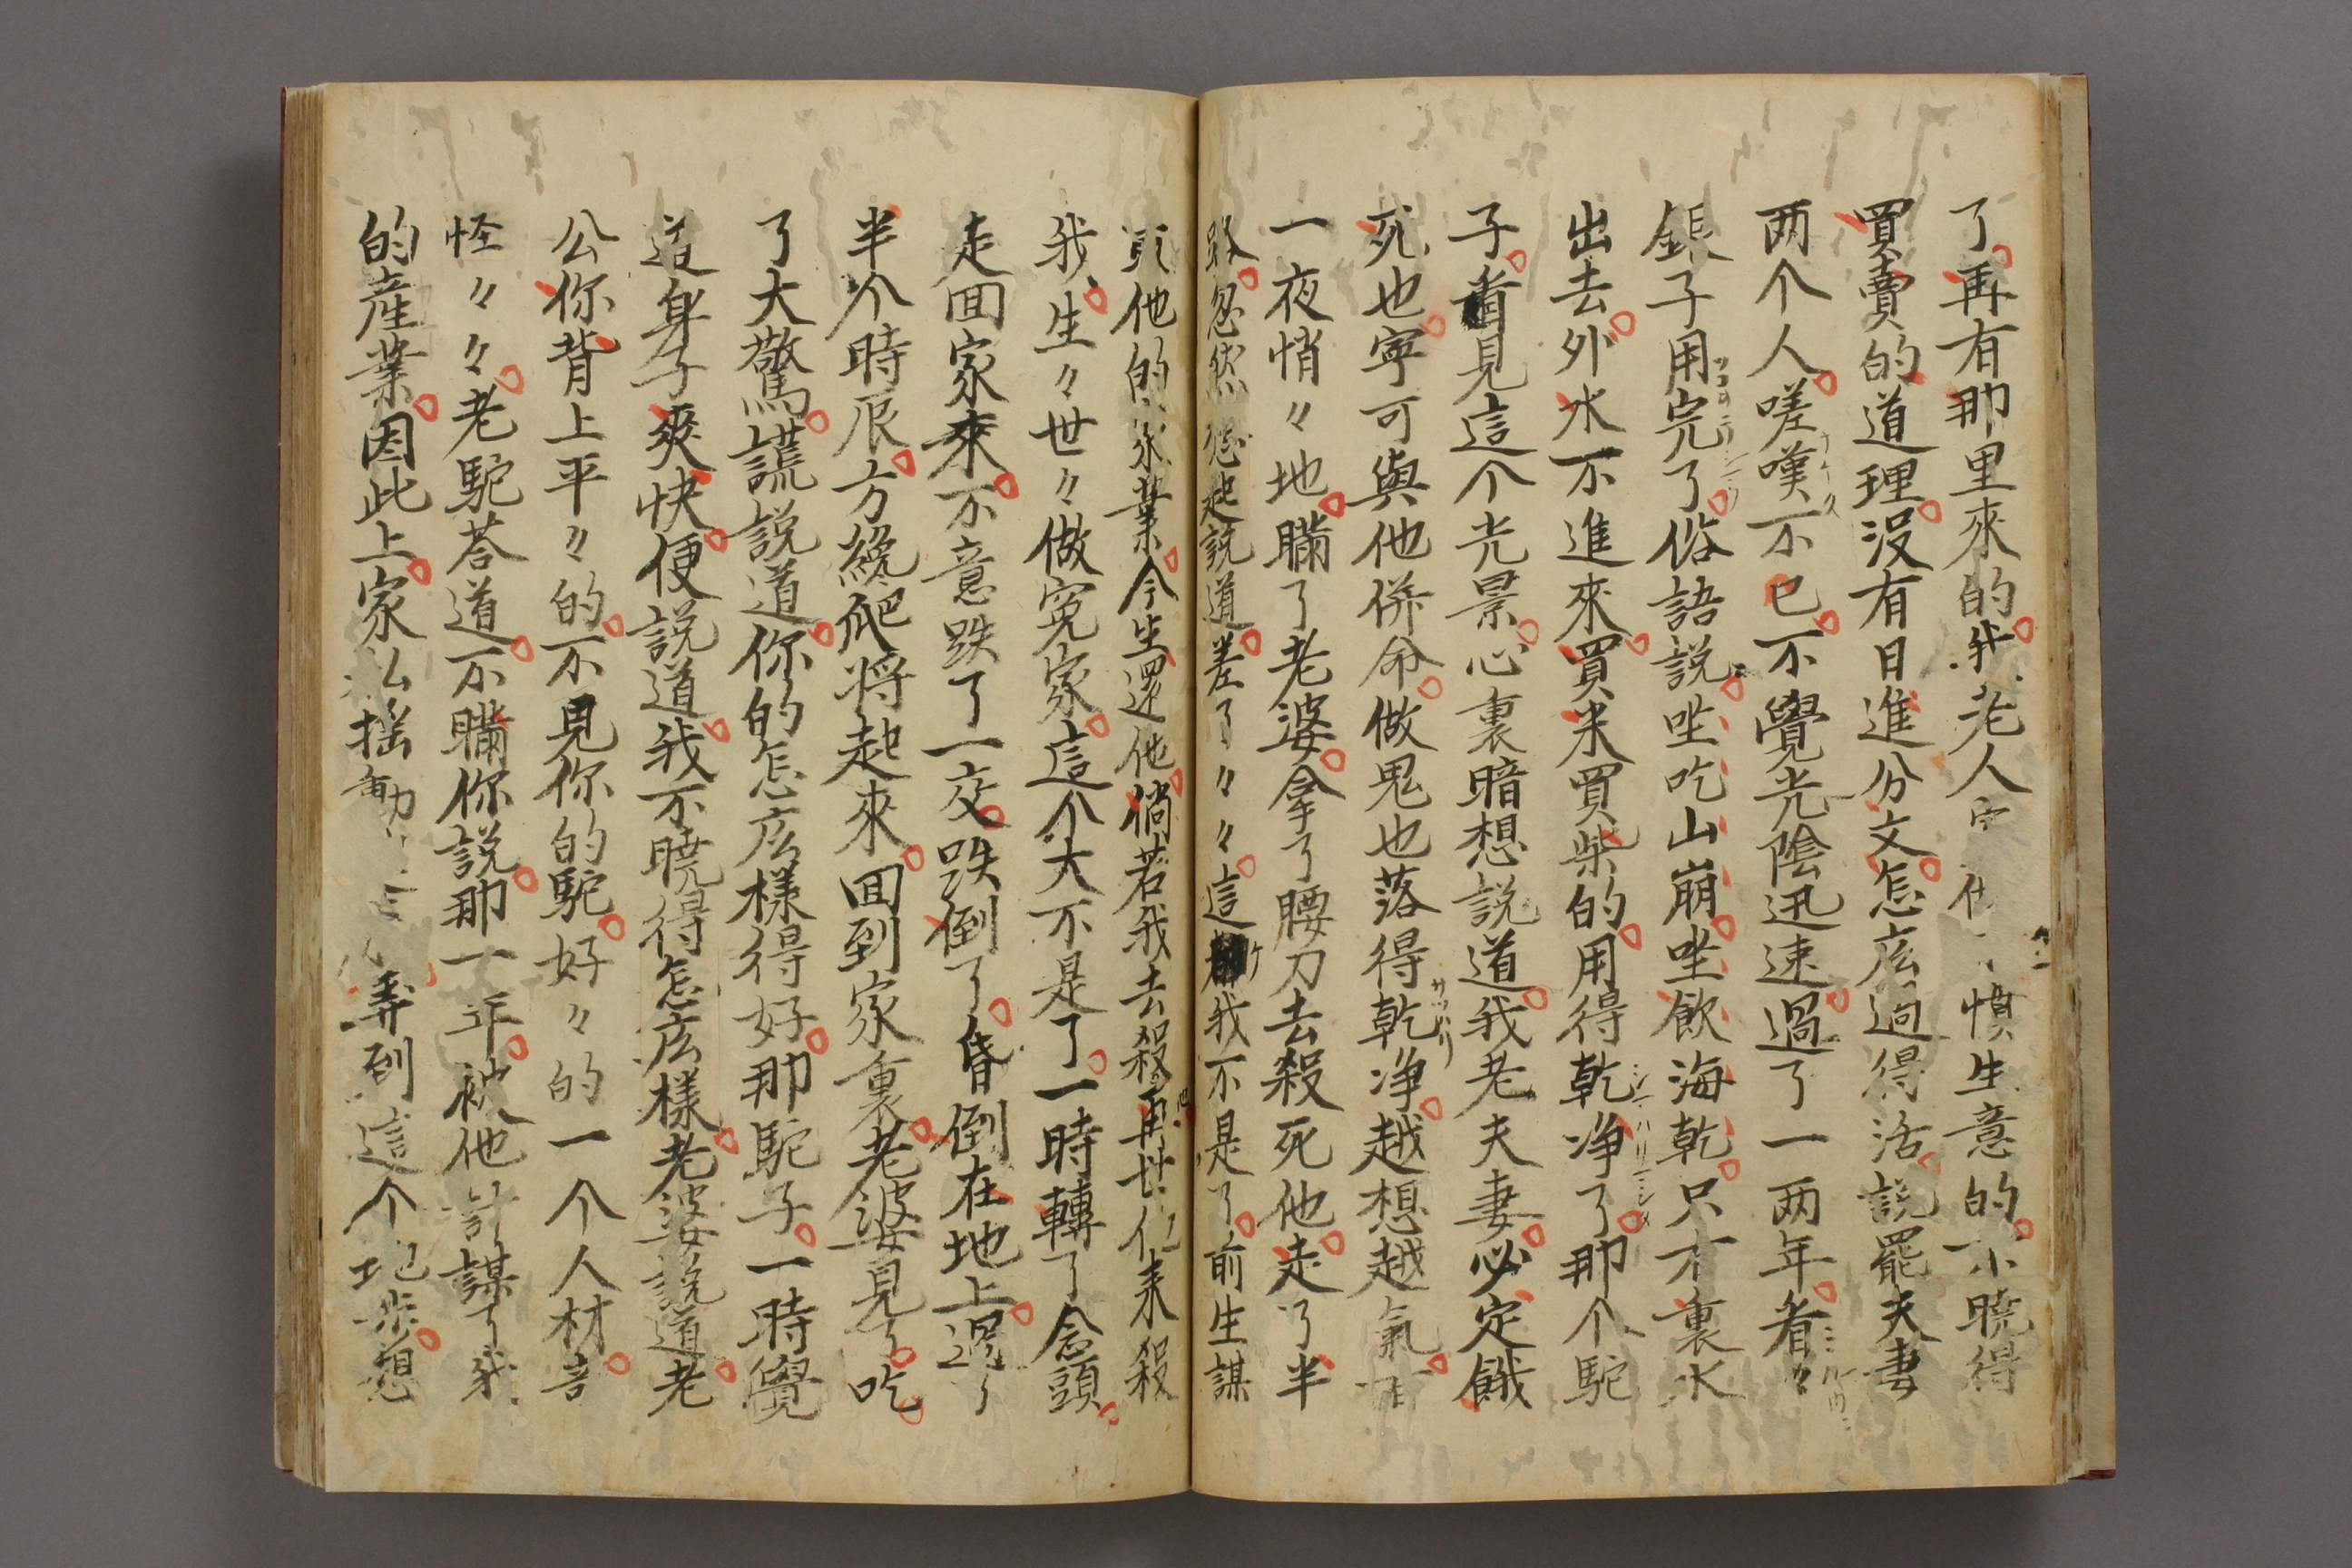 了再有那里來的我老人慣生意的不曉得
買賣的道理没有日進分文怎庅過得活説罷夫妻
两个人嗟嘆不已不覺光陰迅速過了一两年看々
銀子用完了俗語説坐吃山崩坐飲海乾只有裏水
出去外水不進來買米買柴的用得乾净了那个駝
子看見這个光景心裏暗想説道我老夫妻必定餓
死也寧可與他併命做鬼也落得乾净越想越氣有
一夜悄〃地瞞了老婆拿了腰刀去殺死他走了半
路忽然想起説道差了々々這我不是了前生謀
他的家業今生還他倘若我去殺再世他來殺
我生々世々做寃家這个大不是了一時轉了念頭
走回家來不意跌了一交跌倒了昏倒在地上過了
半个時辰方纔爬将起來回到家裏老婆見了吃
了大驚謊説道你的怎庅樣得好那駝子一時覺
道身子爽快便説道我不曉得怎庅樣老婆説道老
公你背上平々的不見你的駝好々的一个人材
怪々々老駝荅道不瞞你説那一年被他計謀了我
的産業因此上家私揺動弄到這个地步想